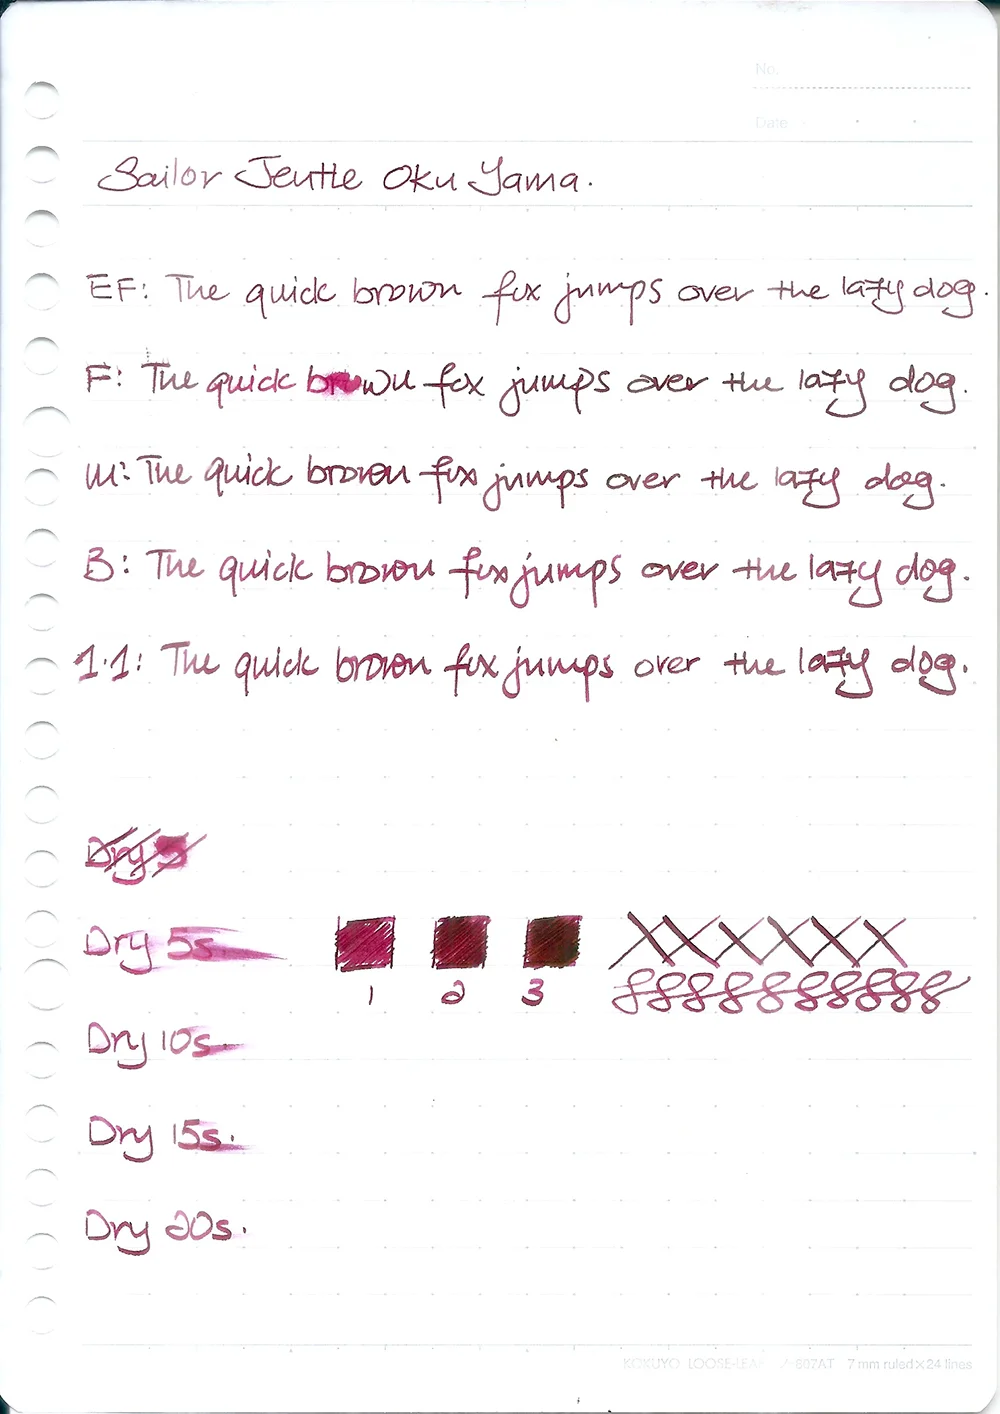 No.
Date
Sailor Jentle Oku Yama.
EF: The quick brown fox jumps over the lazy dog.
F: The quick brown fox jumps over the lazy dog.
M: The quick brown fox jumps over the lazy dog.
B: The quick brown fox jumps over the lazy dog.
1.1: The quick brown fox jumps over the lazy dog.
Dry 5
Dry 5s
1 2 3
XXXXXX
Dry 10s
Dry 15s.
Dry 20s.
KOKUYO LOOSE-LEAF ノ-807AT 7 mm ruled×24 lines